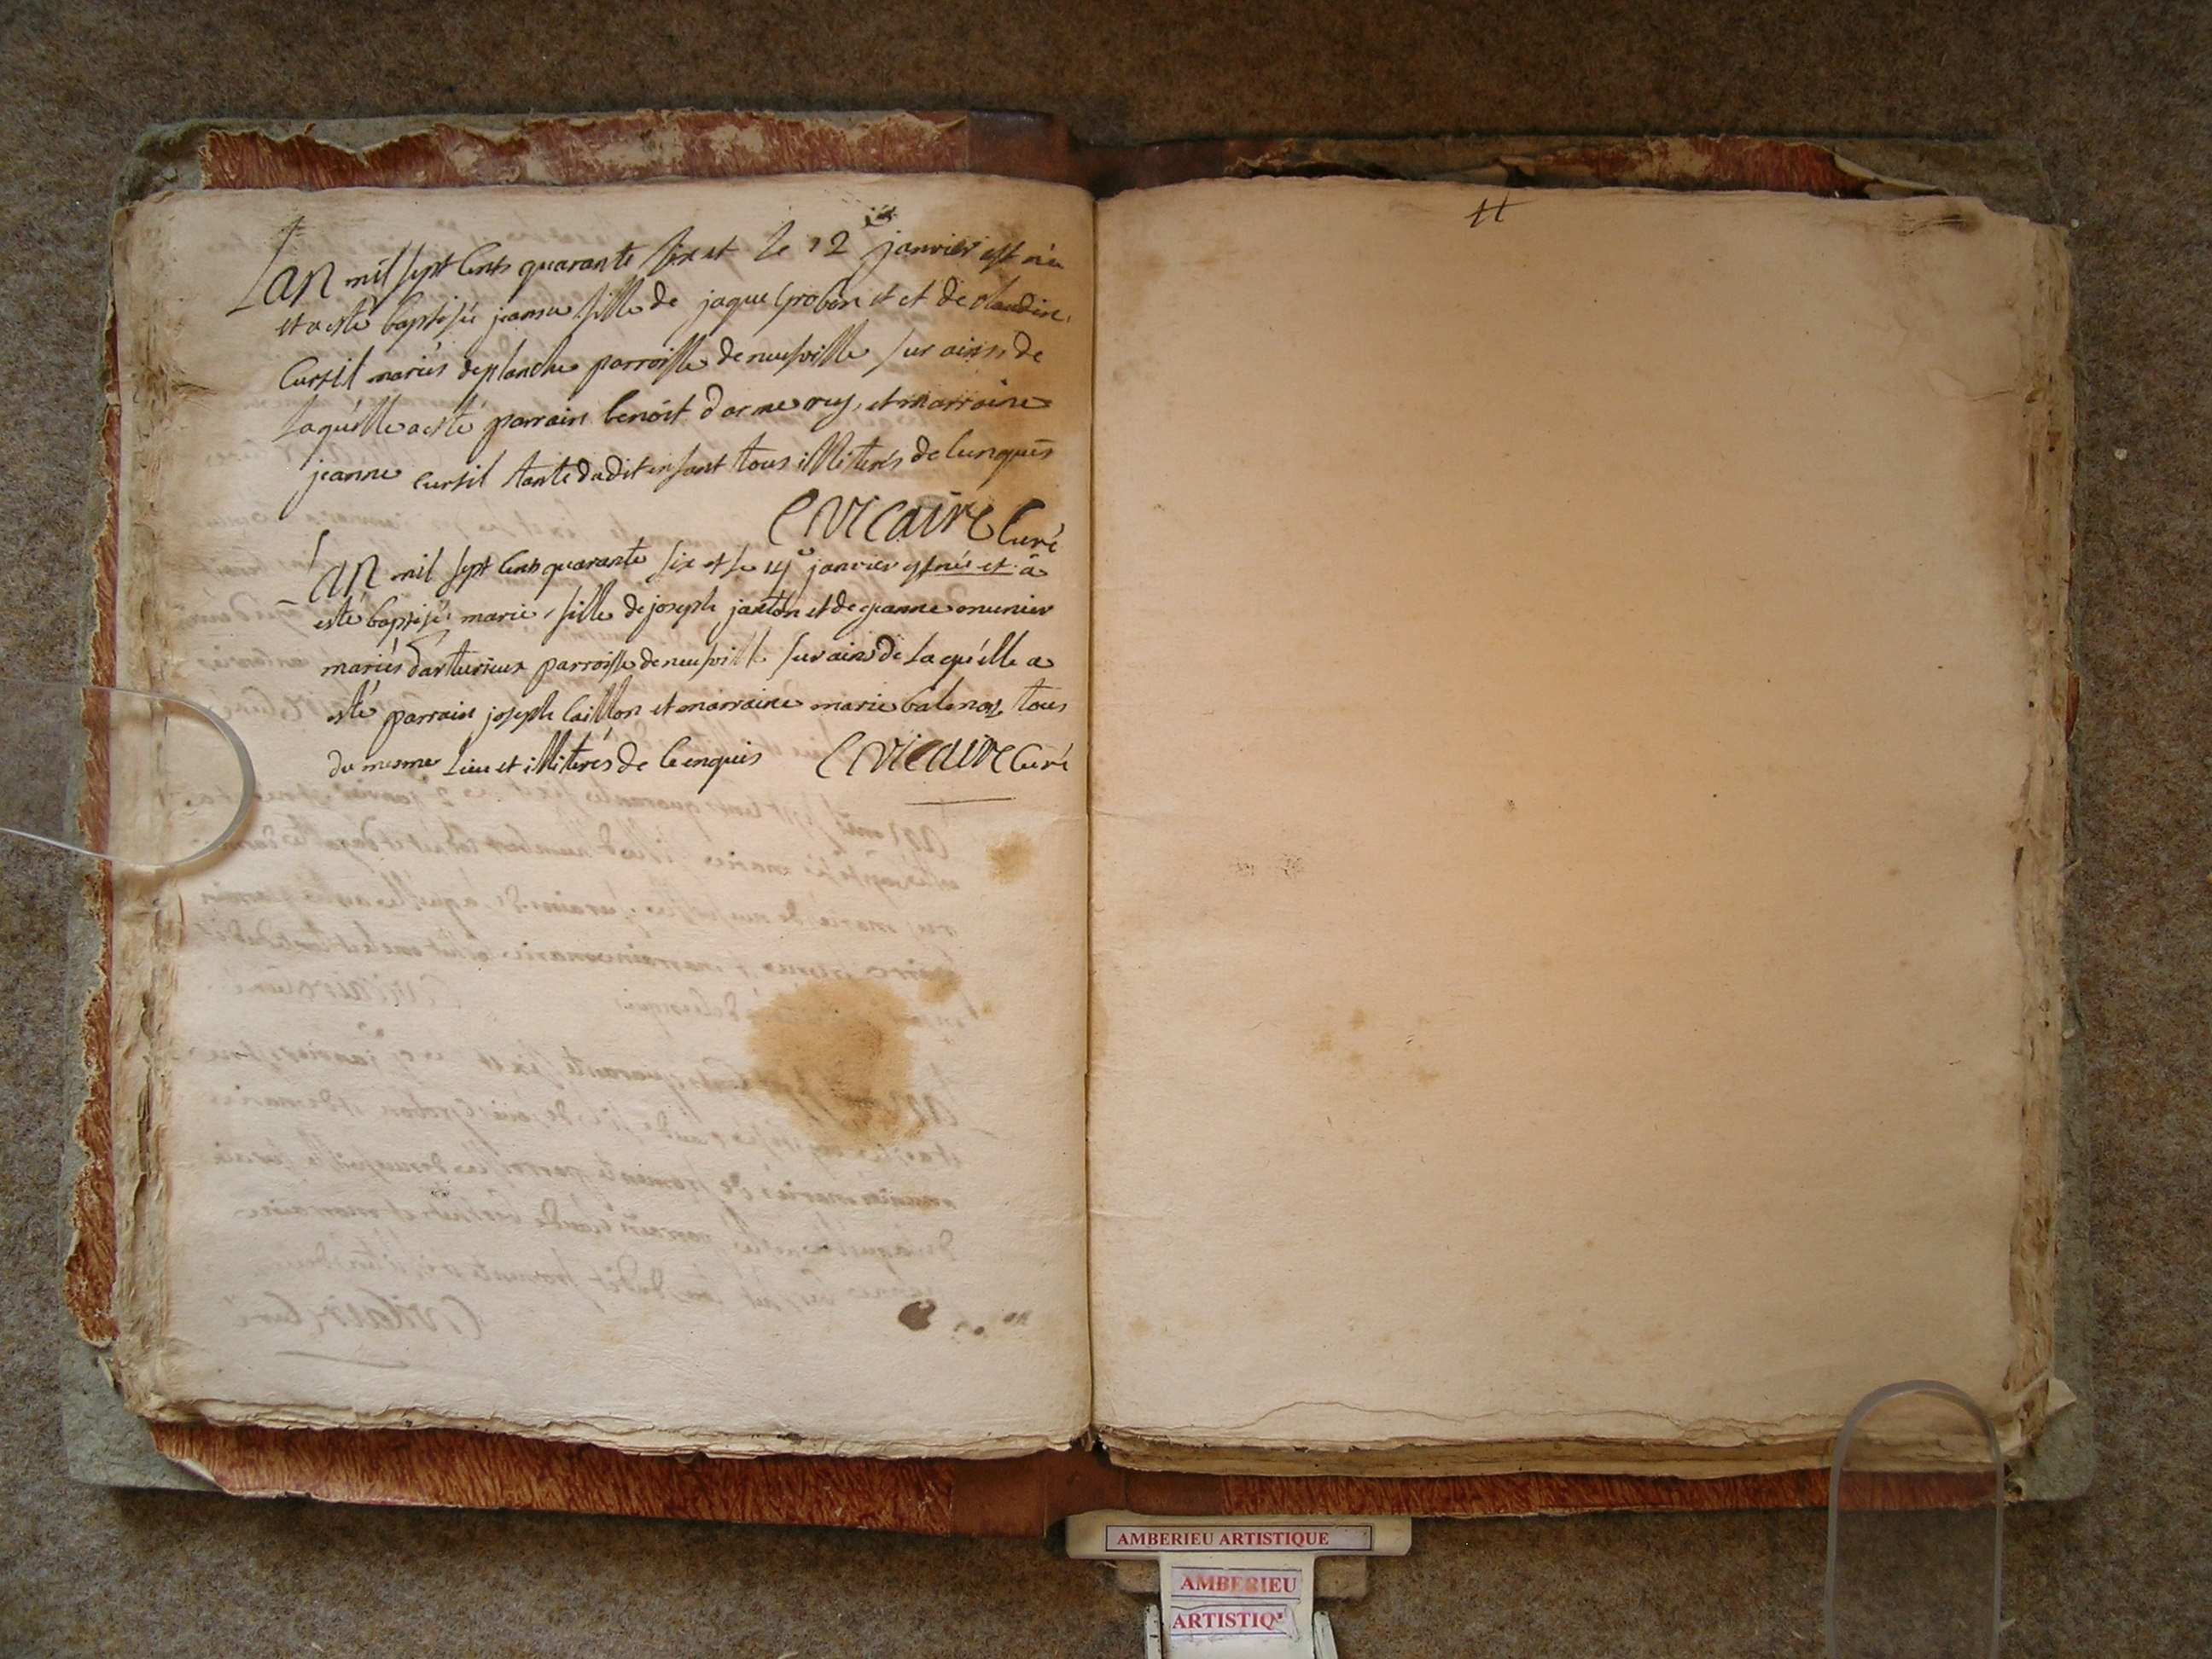 Lan mil sept cents quarante six et le 12e janvier est née
et a esté baptisée jeanne fille de jaque grobon et et de claudine
cursil mariés de planche parroisse de neufville sur ains de
laquélle a esté parrain benoit darmerey, et marraine
jeanne cursil tante dudit enfant tous illiterés de ce enquis
C Vicaire Curé
Lan mil sept cents quarante six et le 14e janvier est née et a
esté baptisée marie fille de joseph janton et de jeanne munier
mariés parroisse de neufville sur ains de laquélle a
esté parrain joseph caillon et marraine marie tous
du mesme lieu et illiterés de ce enquis C Vicaire Curé
AMBERIEU ARTISTIQUE
AMBERIEU
ARTISTIQ